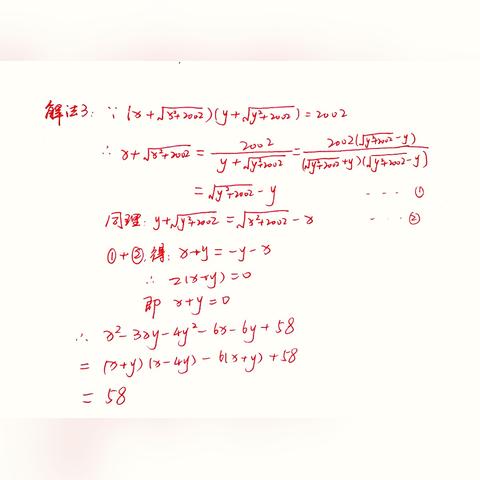 解法3: ∵ (x+√(x²+2002))(y+√(y²+2002))=2002
∴ x+√(x²+2002) = 2002/(y+√(y²+2002)) = 2002(√(y²+2002)-y)/((√(y²+2002)+y)(√(y²+2002)-y))
= √(y²+2002)-y ---- ①
同理: y+√(y²+2002)=√(x²+2002)-x ---- ②
①+②,得: x+y=-y-x
∴ 2(x+y)=0
即 x+y=0
∴ x²-3xy-4y²-6x-6y+58
= (x+y)(x-4y)-6(x+y)+58
= 58